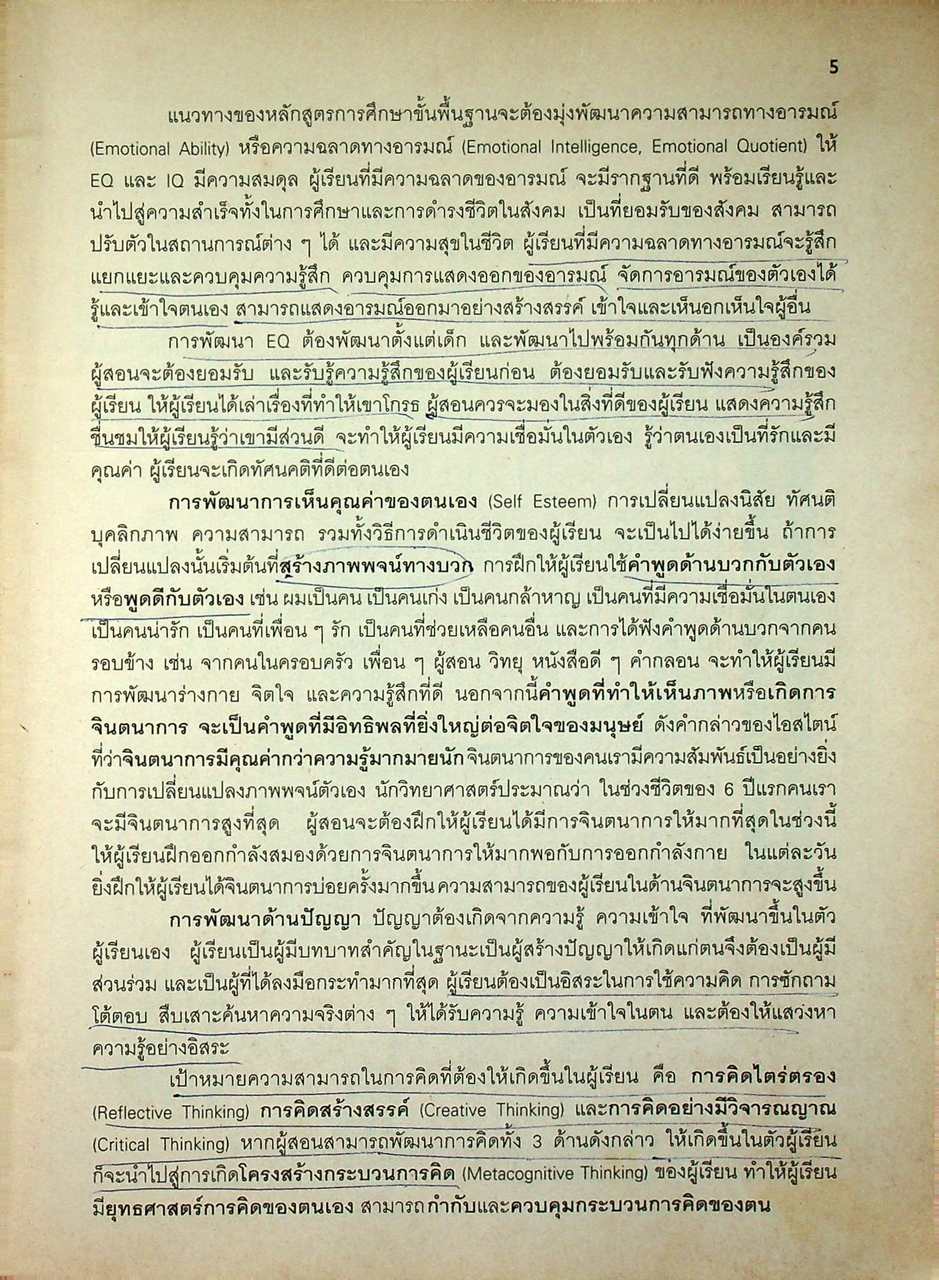 5
แนวทางของหลักสูตรการศึกษาขั้นพื้นฐานจะต้องมุ่งพัฒนาความสามารถทางอารมณ์
(Emotional Ability) หรือความฉลาดทางอารมณ์ (Emotional Intelligence, Emotional Quotient) ให้
EQ และ IQ มีความสมดุล ผู้เรียนที่มีความฉลาดของอารมณ์ จะมีรากฐานที่ดี พร้อมเรียนรู้และ
นำไปสู่ความสำเร็จทั้งในการศึกษาและการดำรงชีวิตในสังคม เป็นที่ยอมรับของสังคม สามารถ
ปรับตัวในสถานการณ์ต่าง ๆ ได้ และมีความสุขในชีวิต ผู้เรียนที่มีความฉลาดทางอารมณ์จะรู้สึก
แยกแยะและควบคุมความรู้สึก ควบคุมการแสดงออกของอารมณ์ จัดการอารมณ์ของตัวเองได้
รู้และเข้าใจตนเอง สามารถแสดงอารมณ์ออกมาอย่างสร้างสรรค์ เข้าใจและเห็นอกเห็นใจผู้อื่น
การพัฒนา EQ ต้องพัฒนาตั้งแต่เด็ก และพัฒนาไปพร้อมกันทุกด้าน เป็นองค์รวม
ผู้สอนจะต้องยอมรับ และรับรู้ความรู้สึกของผู้เรียนก่อน ต้องยอมรับและรับฟังความรู้สึกของ
ผู้เรียน ให้ผู้เรียนได้เล่าเรื่องที่ทำให้เขาโกรธ ผู้สอนควรจะมองในสิ่งที่ดีของผู้เรียน แสดงความรู้สึก
ชื่นชมให้ผู้เรียนรู้ว่าเขามีส่วนดี จะทำให้ผู้เรียนมีความเชื่อมั่นในตัวเอง รู้ว่าตนเองเป็นที่รักและมี
คุณค่า ผู้เรียนจะเกิดทัศนคติที่ดีต่อตนเอง
การพัฒนาการเห็นคุณค่าของตนเอง (Self Esteem) การเปลี่ยนแปลงนิสัย ทัศนติ
บุคลิกภาพ ความสามารถ รวมทั้งวิธีการดำเนินชีวิตของผู้เรียน จะเป็นไปได้ง่ายขึ้น ถ้าการ
เปลี่ยนแปลงนั้นเริ่มต้นที่สร้างภาพพจน์ทางบวก การฝึกให้ผู้เรียนใช้คำพูดด้านบวกกับตัวเอง
หรือพูดดีกับตัวเอง เช่น ผมเป็นคน เป็นคนเก่ง เป็นคนกล้าหาญ เป็นคนที่มีความเชื่อมั่นในตนเอง
เป็นคนน่ารัก เป็นคนที่เพื่อน ๆ รัก เป็นคนที่ช่วยเหลือคนอื่น และการได้ฟังคำพูดด้านบวกจากคน
รอบข้าง เช่น จากคนในครอบครัว เพื่อน ๆ ผู้สอน วิทยุ หนังสือดี ๆ คำกลอน จะทำให้ผู้เรียนมี
การพัฒนาร่างกาย จิตใจ และความรู้สึกที่ดี นอกจากนี้คำพูดที่ทำให้เห็นภาพหรือเกิดการ
จินตนาการ จะเป็นคำพูดที่มีอิทธิพลที่ยิ่งใหญ่ต่อจิตใจของมนุษย์ ดังคำกล่าวของไอสไตน์
ที่ว่าจินตนาการมีคุณค่ากว่าความรู้มากมายนัก จินตนาการของคนเรามีความสัมพันธ์เป็นอย่างยิ่ง
กับการเปลี่ยนแปลงภาพพจน์ตัวเอง นักวิทยาศาสตร์ประมาณว่า ในช่วงชีวิตของ 6 ปีแรกคนเรา
จะมีจินตนาการสูงที่สุด ผู้สอนจะต้องฝึกให้ผู้เรียนได้มีการจินตนาการให้มากที่สุดในช่วงนี้
ให้ผู้เรียนฝึกออกกำลังสมองด้วยการจินตนาการให้มากพอกับการออกกำลังกาย ในแต่ละวัน
ยิ่งฝึกให้ผู้เรียนได้จินตนาการบ่อยครั้งมากขึ้น ความสามารถของผู้เรียนในด้านจินตนาการจะสูงขึ้น
การพัฒนาด้านปัญญา ปัญญาต้องเกิดจากความรู้ ความเข้าใจ ที่พัฒนาขึ้นในตัว
ผู้เรียนเอง ผู้เรียนเป็นผู้มีบทบาทสำคัญในฐานะเป็นผู้สร้างปัญญาให้เกิดแก่ตนจึงต้องเป็นผู้มี
ส่วนร่วม และเป็นผู้ที่ได้ลงมือกระทำมากที่สุด ผู้เรียนต้องเป็นอิสระในการใช้ความคิด การซักถาม
โต้ตอบ สืบเสาะค้นหาความจริงต่าง ๆ ให้ได้รับความรู้ ความเข้าใจในตน และต้องให้แสวงหา
ความรู้อย่างอิสระ
เป้าหมายความสามารถในการคิดที่ต้องให้เกิดขึ้นในผู้เรียน คือ การคิดไตร่ตรอง
(Reflective Thinking) การคิดสร้างสรรค์ (Creative Thinking) และการคิดอย่างมีวิจารณญาณ
(Critical Thinking) หากผู้สอนสามารถพัฒนาการคิดทั้ง 3 ด้านดังกล่าว ให้เกิดขึ้นในตัวผู้เรียน
ก็จะนำไปสู่การเกิดโครงสร้างกระบวนการคิด (Metacognitive Thinking) ของผู้เรียน ทำให้ผู้เรียน
มียุทธศาสตร์การคิดของตนเอง สามารถกำกับและควบคุมกระบวนการคิดของตน